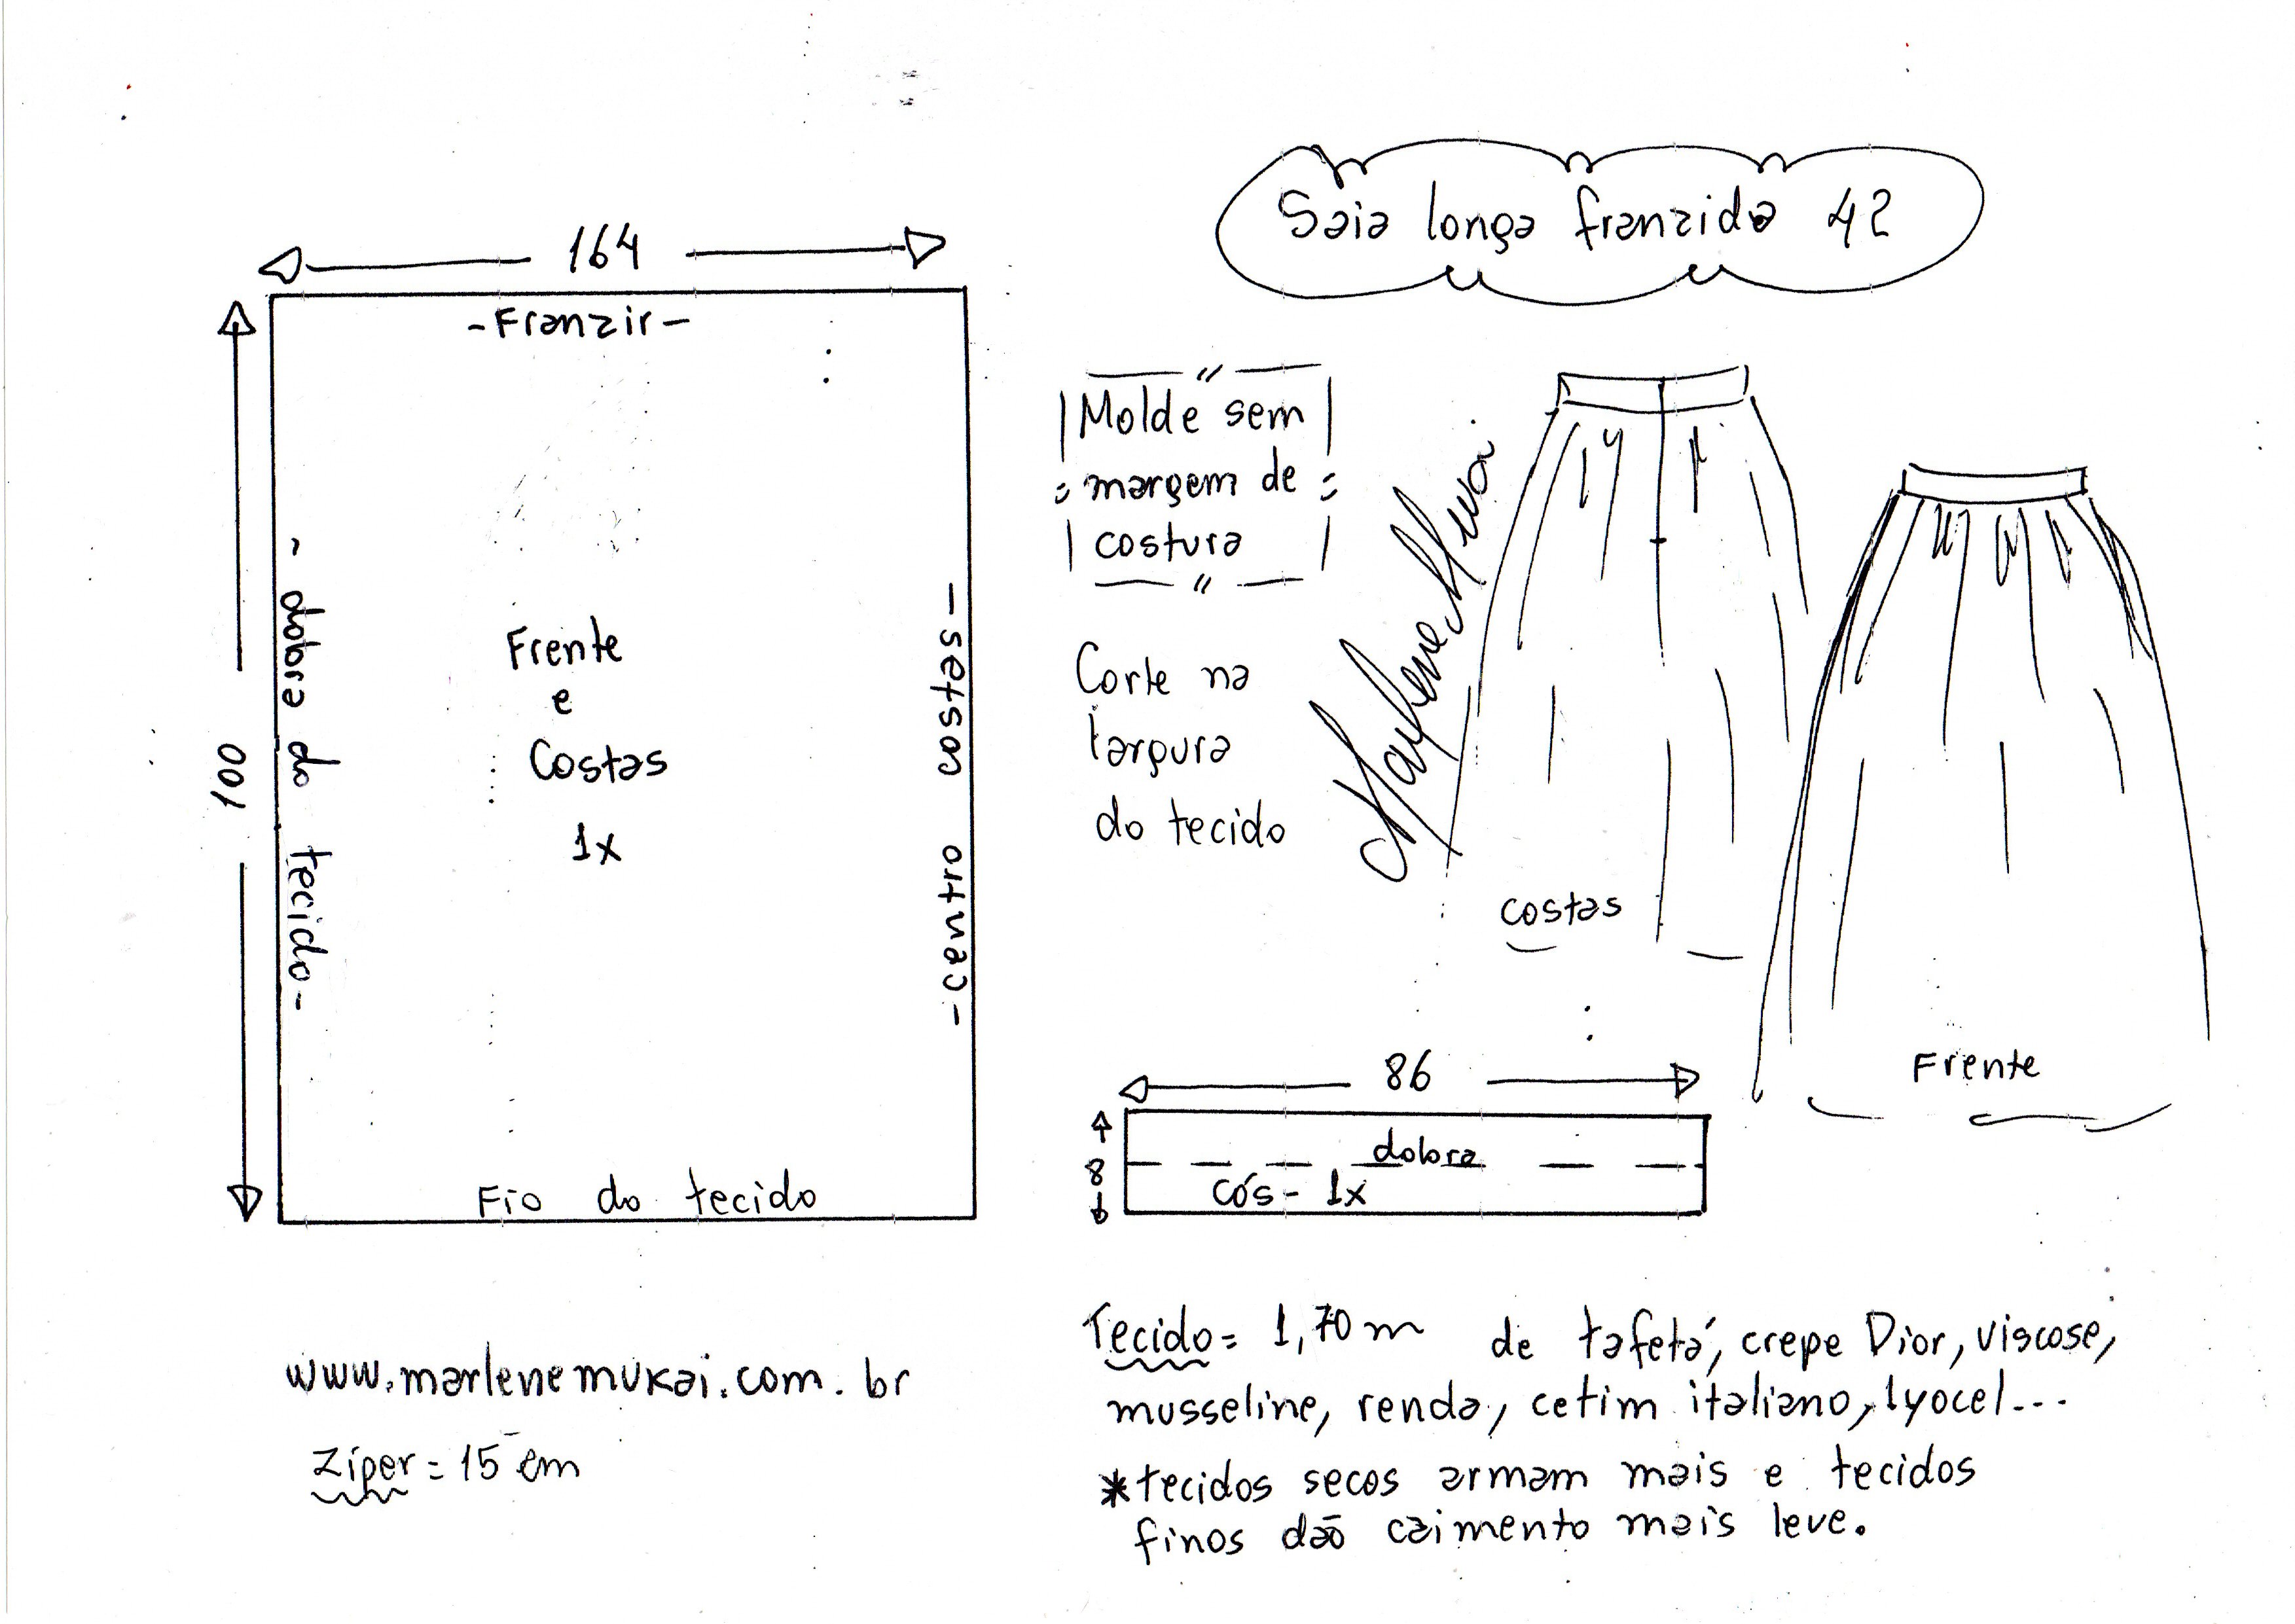 Saia longa franzida 42
164
-Franzir-
100
- dobra do tecido-
Frente
e
Costas
1x
- centro costas -
Fio do tecido
Molde sem
margem de
costura
Corte na
largura
do tecido
Marlene Mukai
costas
Frente
86
8
dobra
cós- 1x
www.marlenemukai.com.br
Zíper = 15 cm
Tecido= 1,70m de tafetá, crepe Dior, viscose,
musseline, renda, cetim italiano, lyocel...
*tecidos secos armam mais e tecidos
finos dão caimento mais leve.